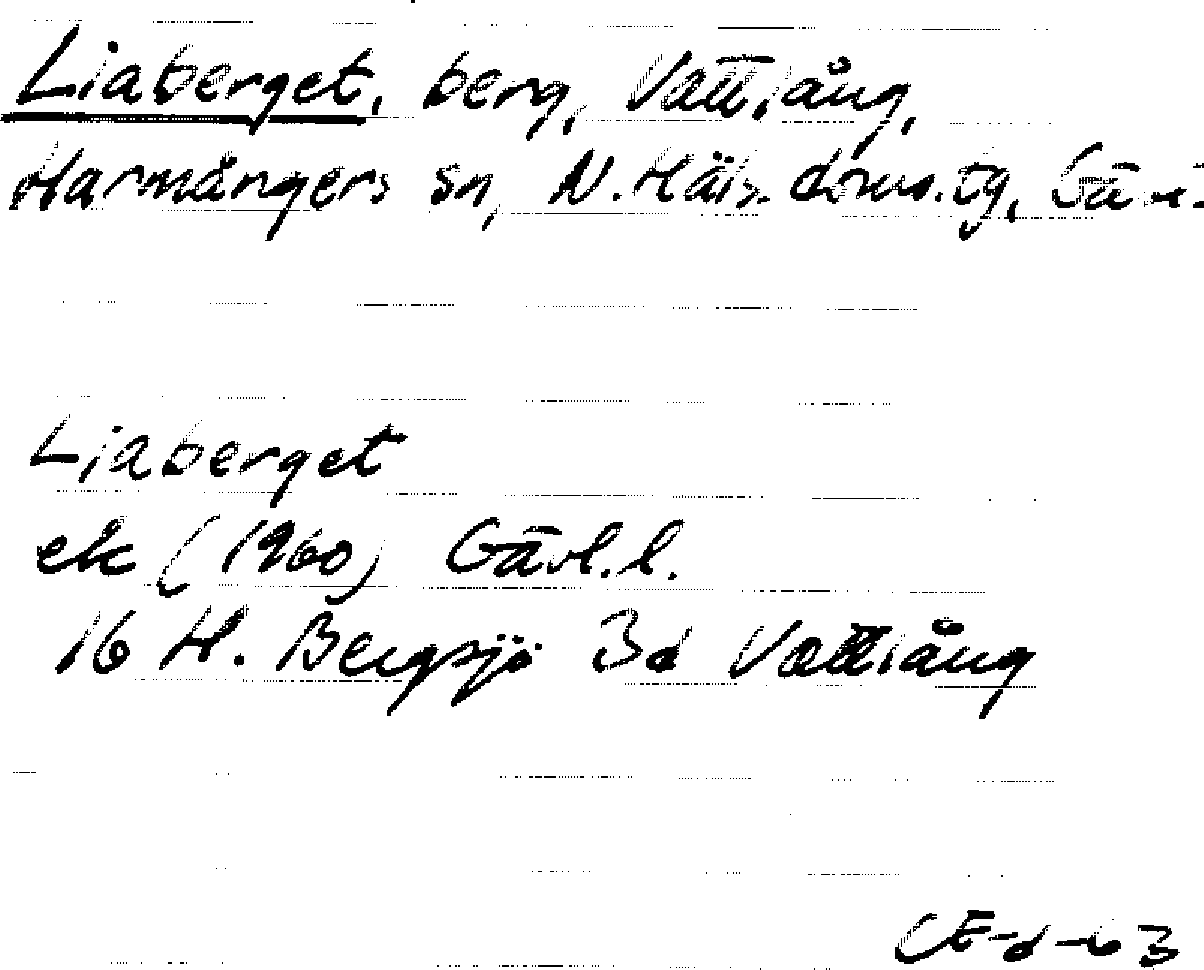 Liaberget, berg, Vattlång,
Harmångers sn, N. Häls. doms. tg, Gävl.
Liaberget
ek (1960) Gävl. l.
16 H. Bergsjö 3d Vattlång